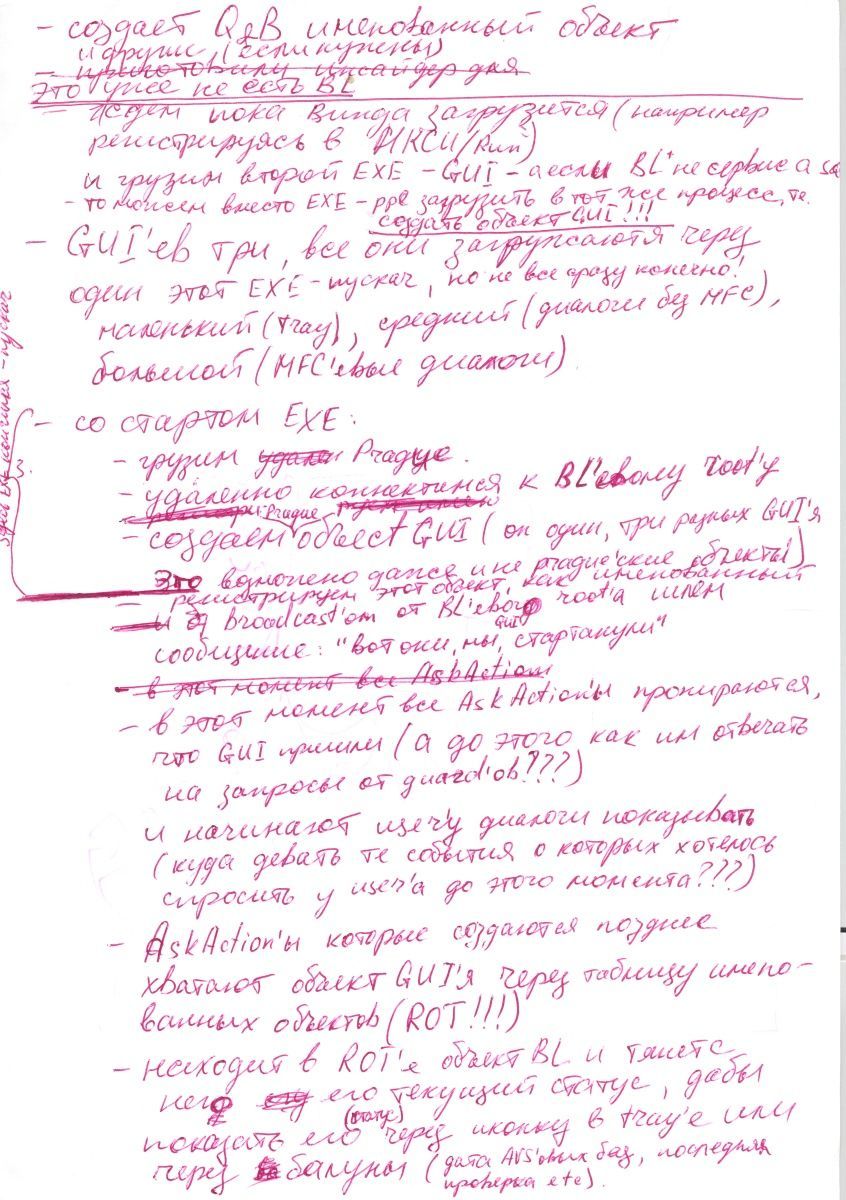 - создает QnB именованный объект
и другие (если нужны)
это уже не есть BL
- ждем пока Винда загрузится (например
регистрируясь в HKCU/Run)
и грузим второй EXE - GUI - а если BL не сервис а
- то можем вместо EXE - ppl загрузить в тот же процесс, т.е.
создать объект GUI!!!
- GUI'ев три, все они загружаются через
один этот EXE - пускач, но не все сразу конечно!
маленький (tray), средний (диалоги без MFC),
большой (MFC'евые диалоги).
3.
- со стартом EXE:
- грузим Prague.
- удаленно коннектимся к BL'евому root'у
- создаем Prague объект GUI (он один, три разных GUI'я
это возможно даже и не prague'ские объекты)
- регистрируем этот объект, как именованный
и broadcast'ом от BL'евого root'а шлем
сообщение: "вот они, мы, GUI стартанули"
- в этот момент все AskAction
- в этот момент все AskAction'ы пропираются,
что GUI пришли (а до этого как им отвечать
на запросы от guard'ов???)
и начинают юзеру диалоги показывать
(куда девать те события о которых хотелось
спросить у юзер'а до этого момента???)
- AskAction'ы которые создаются позднее
хватают объект GUI'я через таблицу имено-
ванных объектов (ROT!!!)
- находит в ROT'е объект BL и тянет с
него его текущий статус, дабы
показать его (статус) через иконку в tray'е или
через балуны (дата AVS'овых баз, последняя
проверка etc).